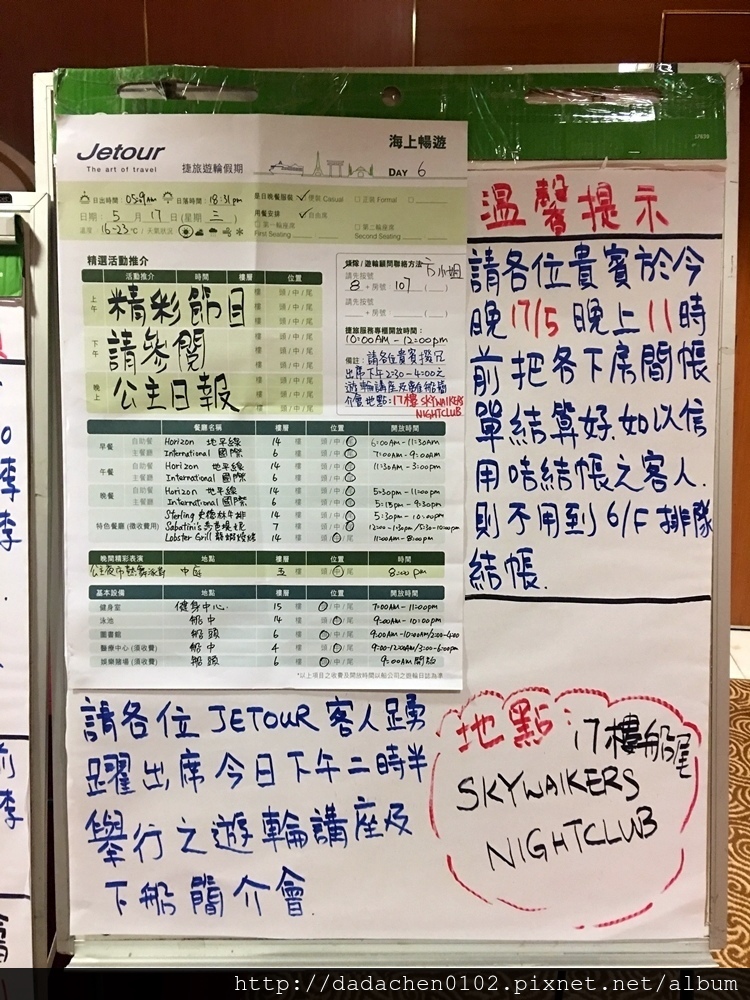 Jetour
The art of travel
捷旅遊輪假期
海上暢遊
DAY 6
日出時間 05:49am 日落時間 18:31pm
是日晚餐服裝 ✓便裝 Casual □正裝 Formal □
日期: 5 月 17 日 (星期 三 )
用餐安排 ✓自由席
溫度 16-23℃ / 天氣狀況
□第一輪座席 First Seating
□第二輪座席 Second Seating
精選活動推介
活動推介 時間 樓層 位置
上午 精彩節目 樓 頭/中/尾
下午 請參閱 樓 頭/中/尾
晚上 公主日報 樓 頭/中/尾
領隊 / 遊輪顧問聯絡方法:
請先按號
8 + 房號: 107 ( )
請先按號
+ 房號: ( )
捷旅服務專櫃開放時間:
10:00AM - 12:00pm
備註: 請各位貴賓撥冗
出席下午2:30-4:00之
遊輪講座及離船簡
介會 地點: 17樓 SKYWALKERS
NIGHTCLUB
餐廳名稱 樓層 位置 開放時間
早餐 自助餐 Horizon 地平線 14 樓 頭/中/尾 6:00AM-11:30AM
主餐廳 International 國際 6 樓 頭/中/尾 7:00AM-9:00AM
午餐 自助餐 Horizon 地平線 14 樓 頭/中/尾 11:30AM-3:00pm
主餐廳 International 國際 6 樓 頭/中/尾
晚餐 自助餐 Horizon 地平線 14 樓 頭/中/尾 5:30pm-11:00pm
主餐廳 International 國際 6 樓 頭/中/尾 5:15pm-8:30pm
特色餐廳 (徵收費用) Sterling 牛排 14 樓 頭/中/尾 5:30pm-10:00pm
Sabatini's 7 樓 頭/中/尾 12:00-1:30pm/5:30-10:00pm
Lobster Grill 龍蝦燒烤 14 樓 頭/中/尾 11:00AM-8:00pm
晚間精彩表演 地點 樓層 位置 時間
公主夜市熱舞派對 中庭 五 樓 頭/中/尾 8:00pm
基本設備 地點 樓層 位置 開放時間
健身室 健身中心 15 樓 頭/中/尾 7:00AM-11:00pm
泳池 船中 14 樓 頭/中/尾 9:00AM-10:00pm
圖書館 船頭 6 樓 頭/中/尾 9:00AM-10:00AM/2:00-4:00
醫療中心 (須收費) 船中 4 樓 頭/中/尾 9:00-12:00AM/3:00-6:00pm
娛樂賭場 (須收費) 船頭 6 樓 頭/中/尾 9:00AM開始
*以上項目之收費及開放時間以船公司之遊輪日誌為準
溫馨提示
請各位貴賓於今
晚17/5 晚上11時
前把各下房間帳
單結算好.如以信
用咭結帳之客人.
則不用到6/F排隊
結帳.
請各位 JETOUR 客人踴
躍出席今日下午二時半
舉行之遊輪講座及
下船簡介會.
地點: 17樓船尾
SKYWAlKERS
NIGHTCLUB
http://dadachen0102.pixnet.net/album